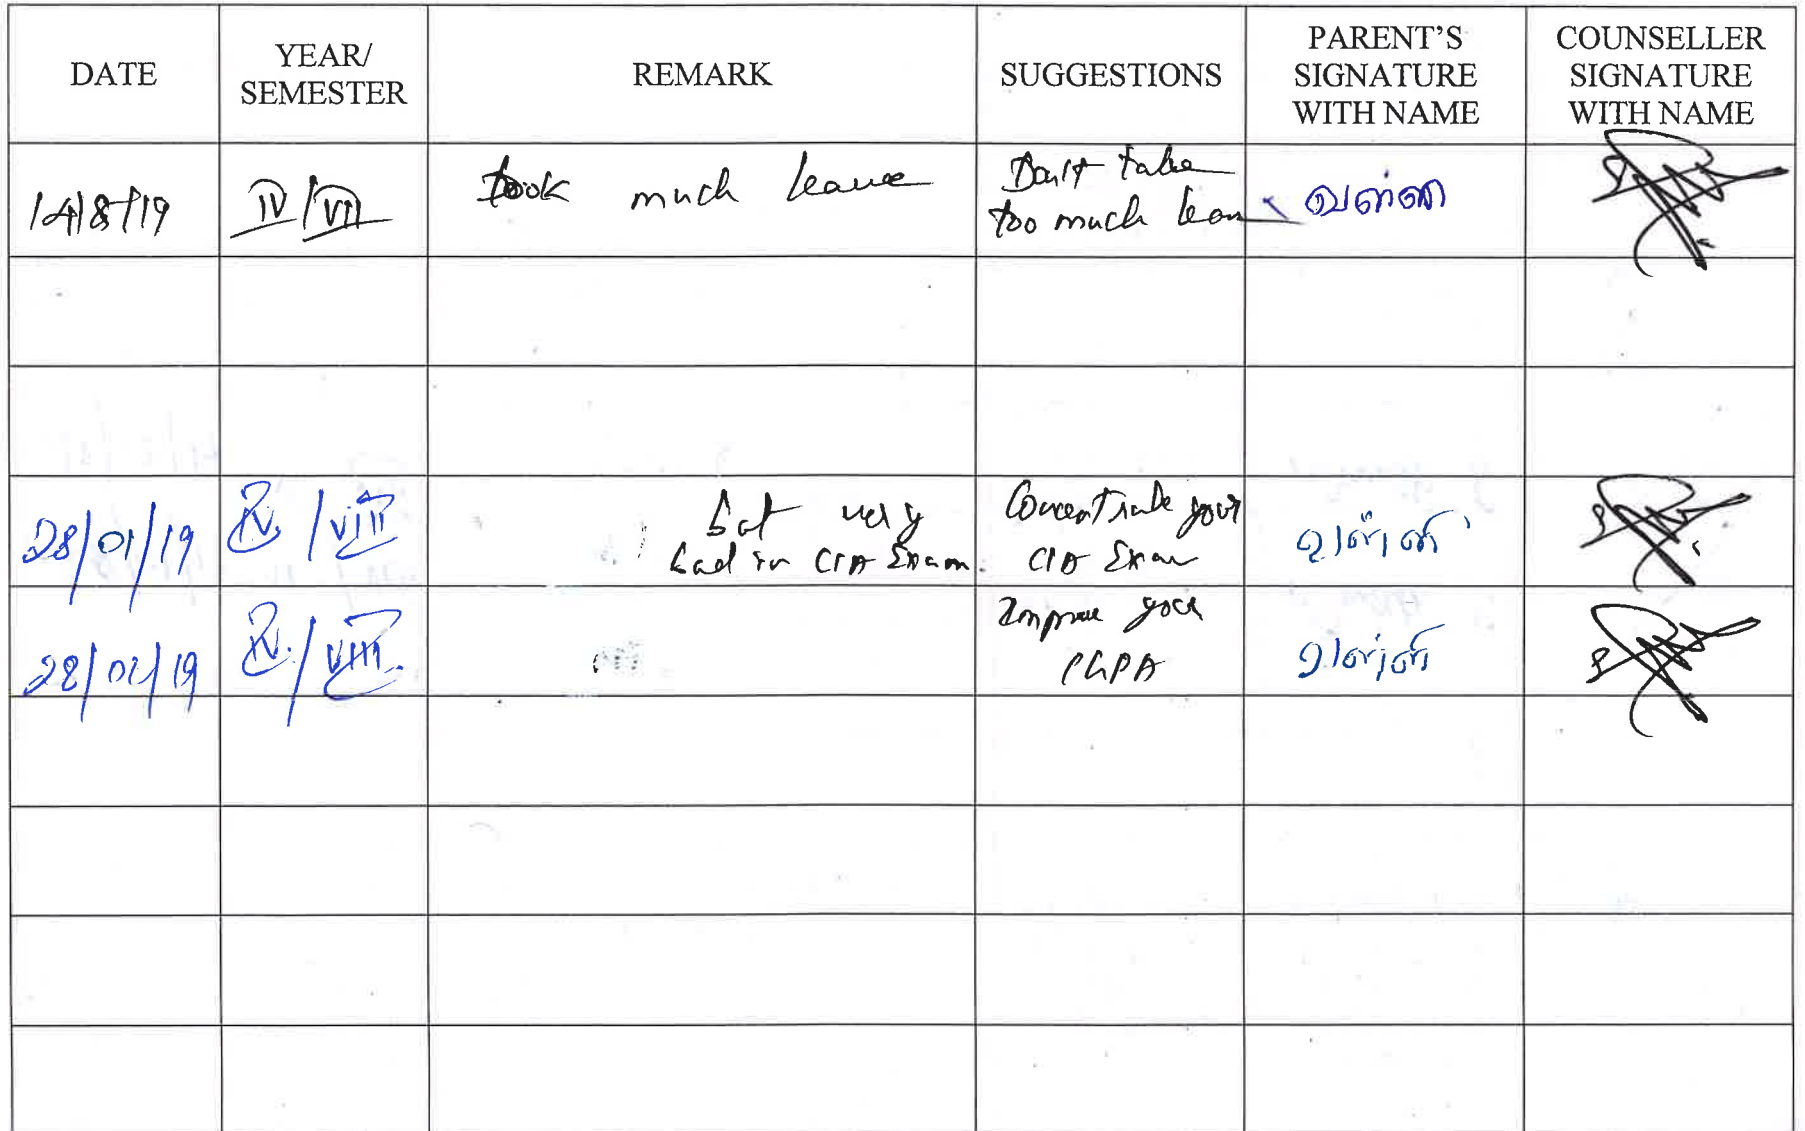 DATE
YEAR/
SEMESTER
REMARK
SUGGESTIONS
PARENT'S
SIGNATURE
WITH NAME
COUNSELLER
SIGNATURE
WITH NAME
14/8/19
IV/VII
took much leave
Don't take
too much
28/01/19
IV/VIII
very
bad in CIA Exam.
Concentrate your
CIA Exam
வள்ளி
28/01/19
IV/VIII
Improve your
வள்ளி